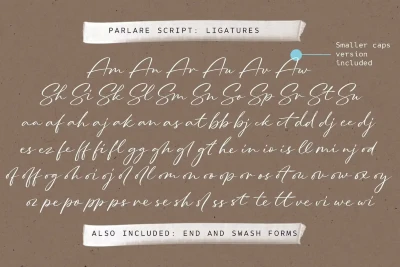 PARLARE SCRIPT: LIGATURES
Smaller caps
version
included
Am An Ar Au Av Aw
Sh Si Sk Sl Sm Sn So Sp Sr St Su
aa af ah aj ak an as at bb bj ck ct dd dj ee dj
es ez fe ff fi fl gg gh gl gt he in io is ll mi nj od
of off og oh oi oj ol om on oo op or os ou ov ow ox oy
oz pe po pp ps re se sh sl ss st te tt ve vi we wi
ALSO INCLUDED: END AND SWASH FORMS